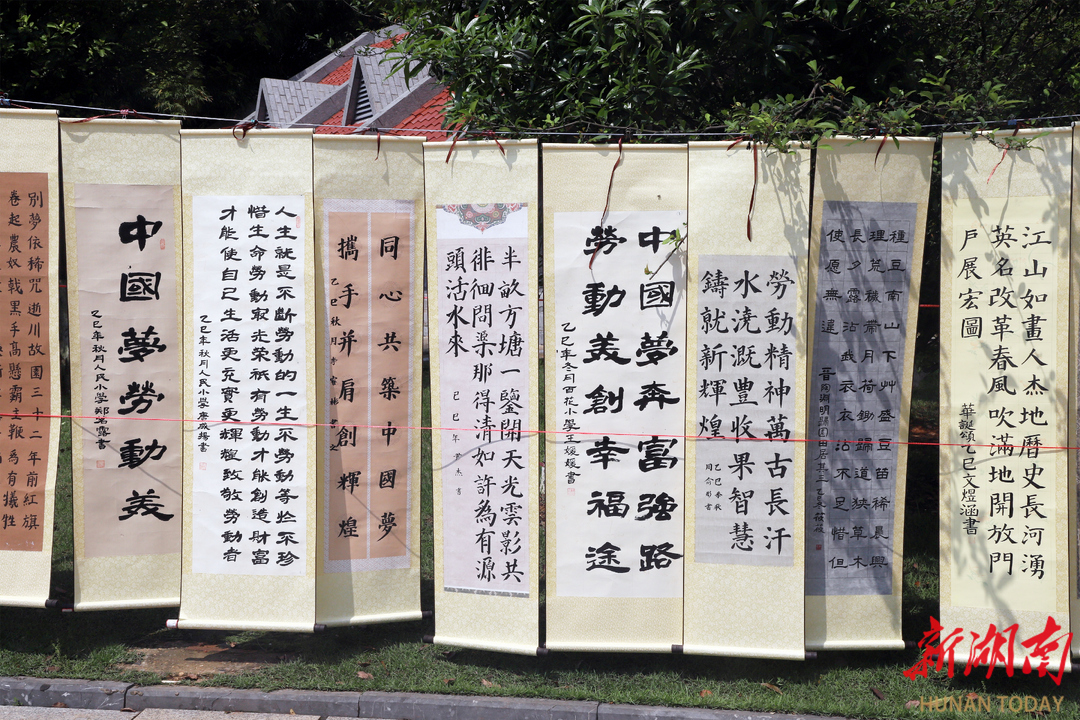 別夢依稀咒逝川故園三十二年前紅旗
卷起農奴戟黑手高懸霸主鞭為有犧牲
中國夢勞動美
乙巳年秋月人民小學鄭茗露書
人生就是不斷勞動的一生不勞動等於不珍
惜生命勞動最光榮祇有勞動才能創造財富
才能使自己生活更充實更輝煌致敬勞動者
乙巳年秋月人民小學唐揚書
同心共築中國夢
攜手并肩創輝煌
乙巳秋月
半畝方塘一鑒開天光雲影共
徘徊問渠那得清如許為有源
頭活水來
乙巳年尹杰書
中國夢奔富強路
勞動美創幸福途
乙巳年冬月百花小學王媛媛書
勞動精神萬古長汗
水澆溉豐收果智慧
鑄就新輝煌
乙巳季秋
種豆南山下艸盛豆苗稀晨興
理荒穢帶月荷鋤歸道狹草木
長夕露沾我衣衣沾不足惜但
使願無違
晉陶淵明歸園田居其三乙巳
江山如畫人杰地曆史長河湧
英名改革春風吹滿地開放門
戶展宏圖
華誕頌乙巳文煜涵書
新湖南
HUNAN TODAY